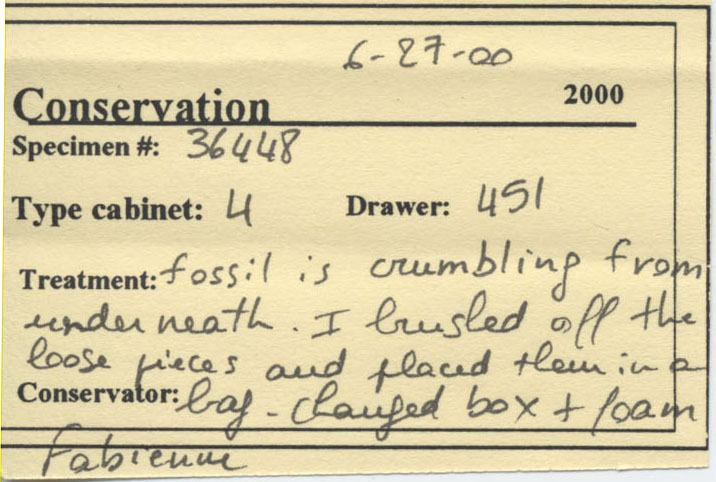 6-27-00
2000
Conservation
Specimen #: 36448
Type cabinet: 4 Drawer: 451
Treatment: fossil is crumbling from
underneath. I brushed off the
loose pieces and placed them in a
Conservator: bag - changed box + foam
Fabienne